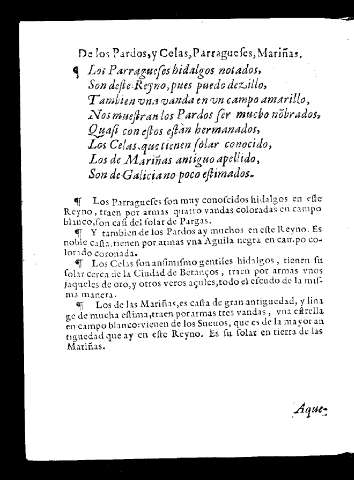 De los Pardos, y Celas, Parragueses, Mariñas.
¶ Los Parragueses hidalgos notados,
Son deste Reyno, pues puedo dezillo,
Tambien vna vanda en vn campo amarillo,
Nos muestran los Pardos ser mucho nõbrados,
Quasi con estos están hermanados,
Los Celas, que tienen solar conocido,
Los de Mariñas antiguo apellido,
Son de Galiciano poco estimados.
¶ Los Parragueses son muy conoscidos hidalgos en este
Reyno, traen por armas quatro vandas coloradas en campo
blanco, son casi del solar de Pargas.
¶ Y tambien de los Pardos ay muchos en este Reyno. Es
noble casta, tienen por armas vna Aguila negra en campo co-
lorado coronada.
¶ Los Celas son ansimismo gentiles hidalgos, tienen su
solar cerca de la Ciudad de Betanços, traen por armas vnos
jaqueles de oro, y otros veros açules, todo el escudo de la mis-
ma manera.
¶ Los de las Mariñas, es casta de gran antiguedad, y lina
ge de mucha estima, traen por armas tres vandas, vna estrella
en campo blanco: vienen de los Sueuos, que es de la mayor an
tiguedad que ay en este Reyno. Es su solar en tierra de las
Mariñas.
Aque-